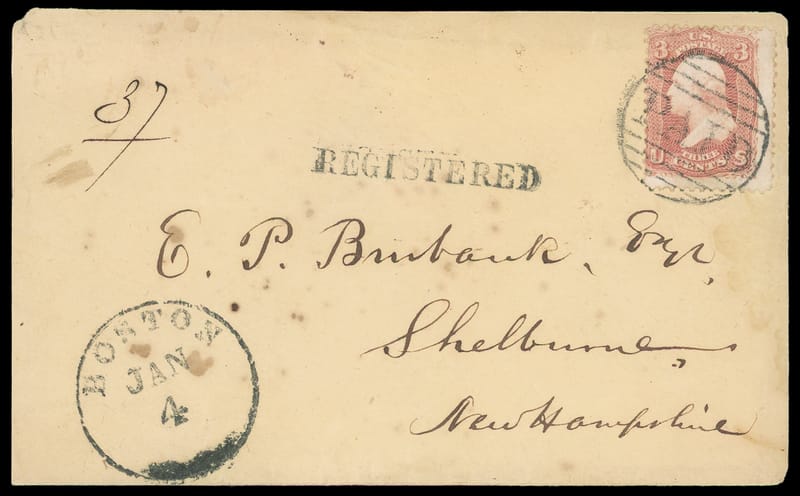 U.S.
3 POSTAGE 3
U THREE S
CENTS
PAID
37
REGISTERED
E. P. Burbank, Esqr,
Shelburne,
New Hampshire
BOSTON
JAN
4